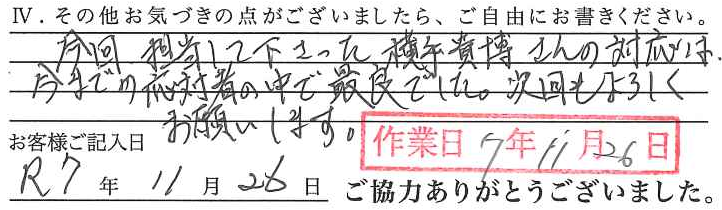 Ⅳ．その他お気づきの点がございましたら、ご自由にお書きください。
今回 担当して下さった 横手貴博 さんの対応は、
今までの応対者の中で最良でした。次回もよろしく
お願いします。
お客様ご記入日
作業日 7年11月26日
R7 年 11 月 26 日 ご協力ありがとうございました。